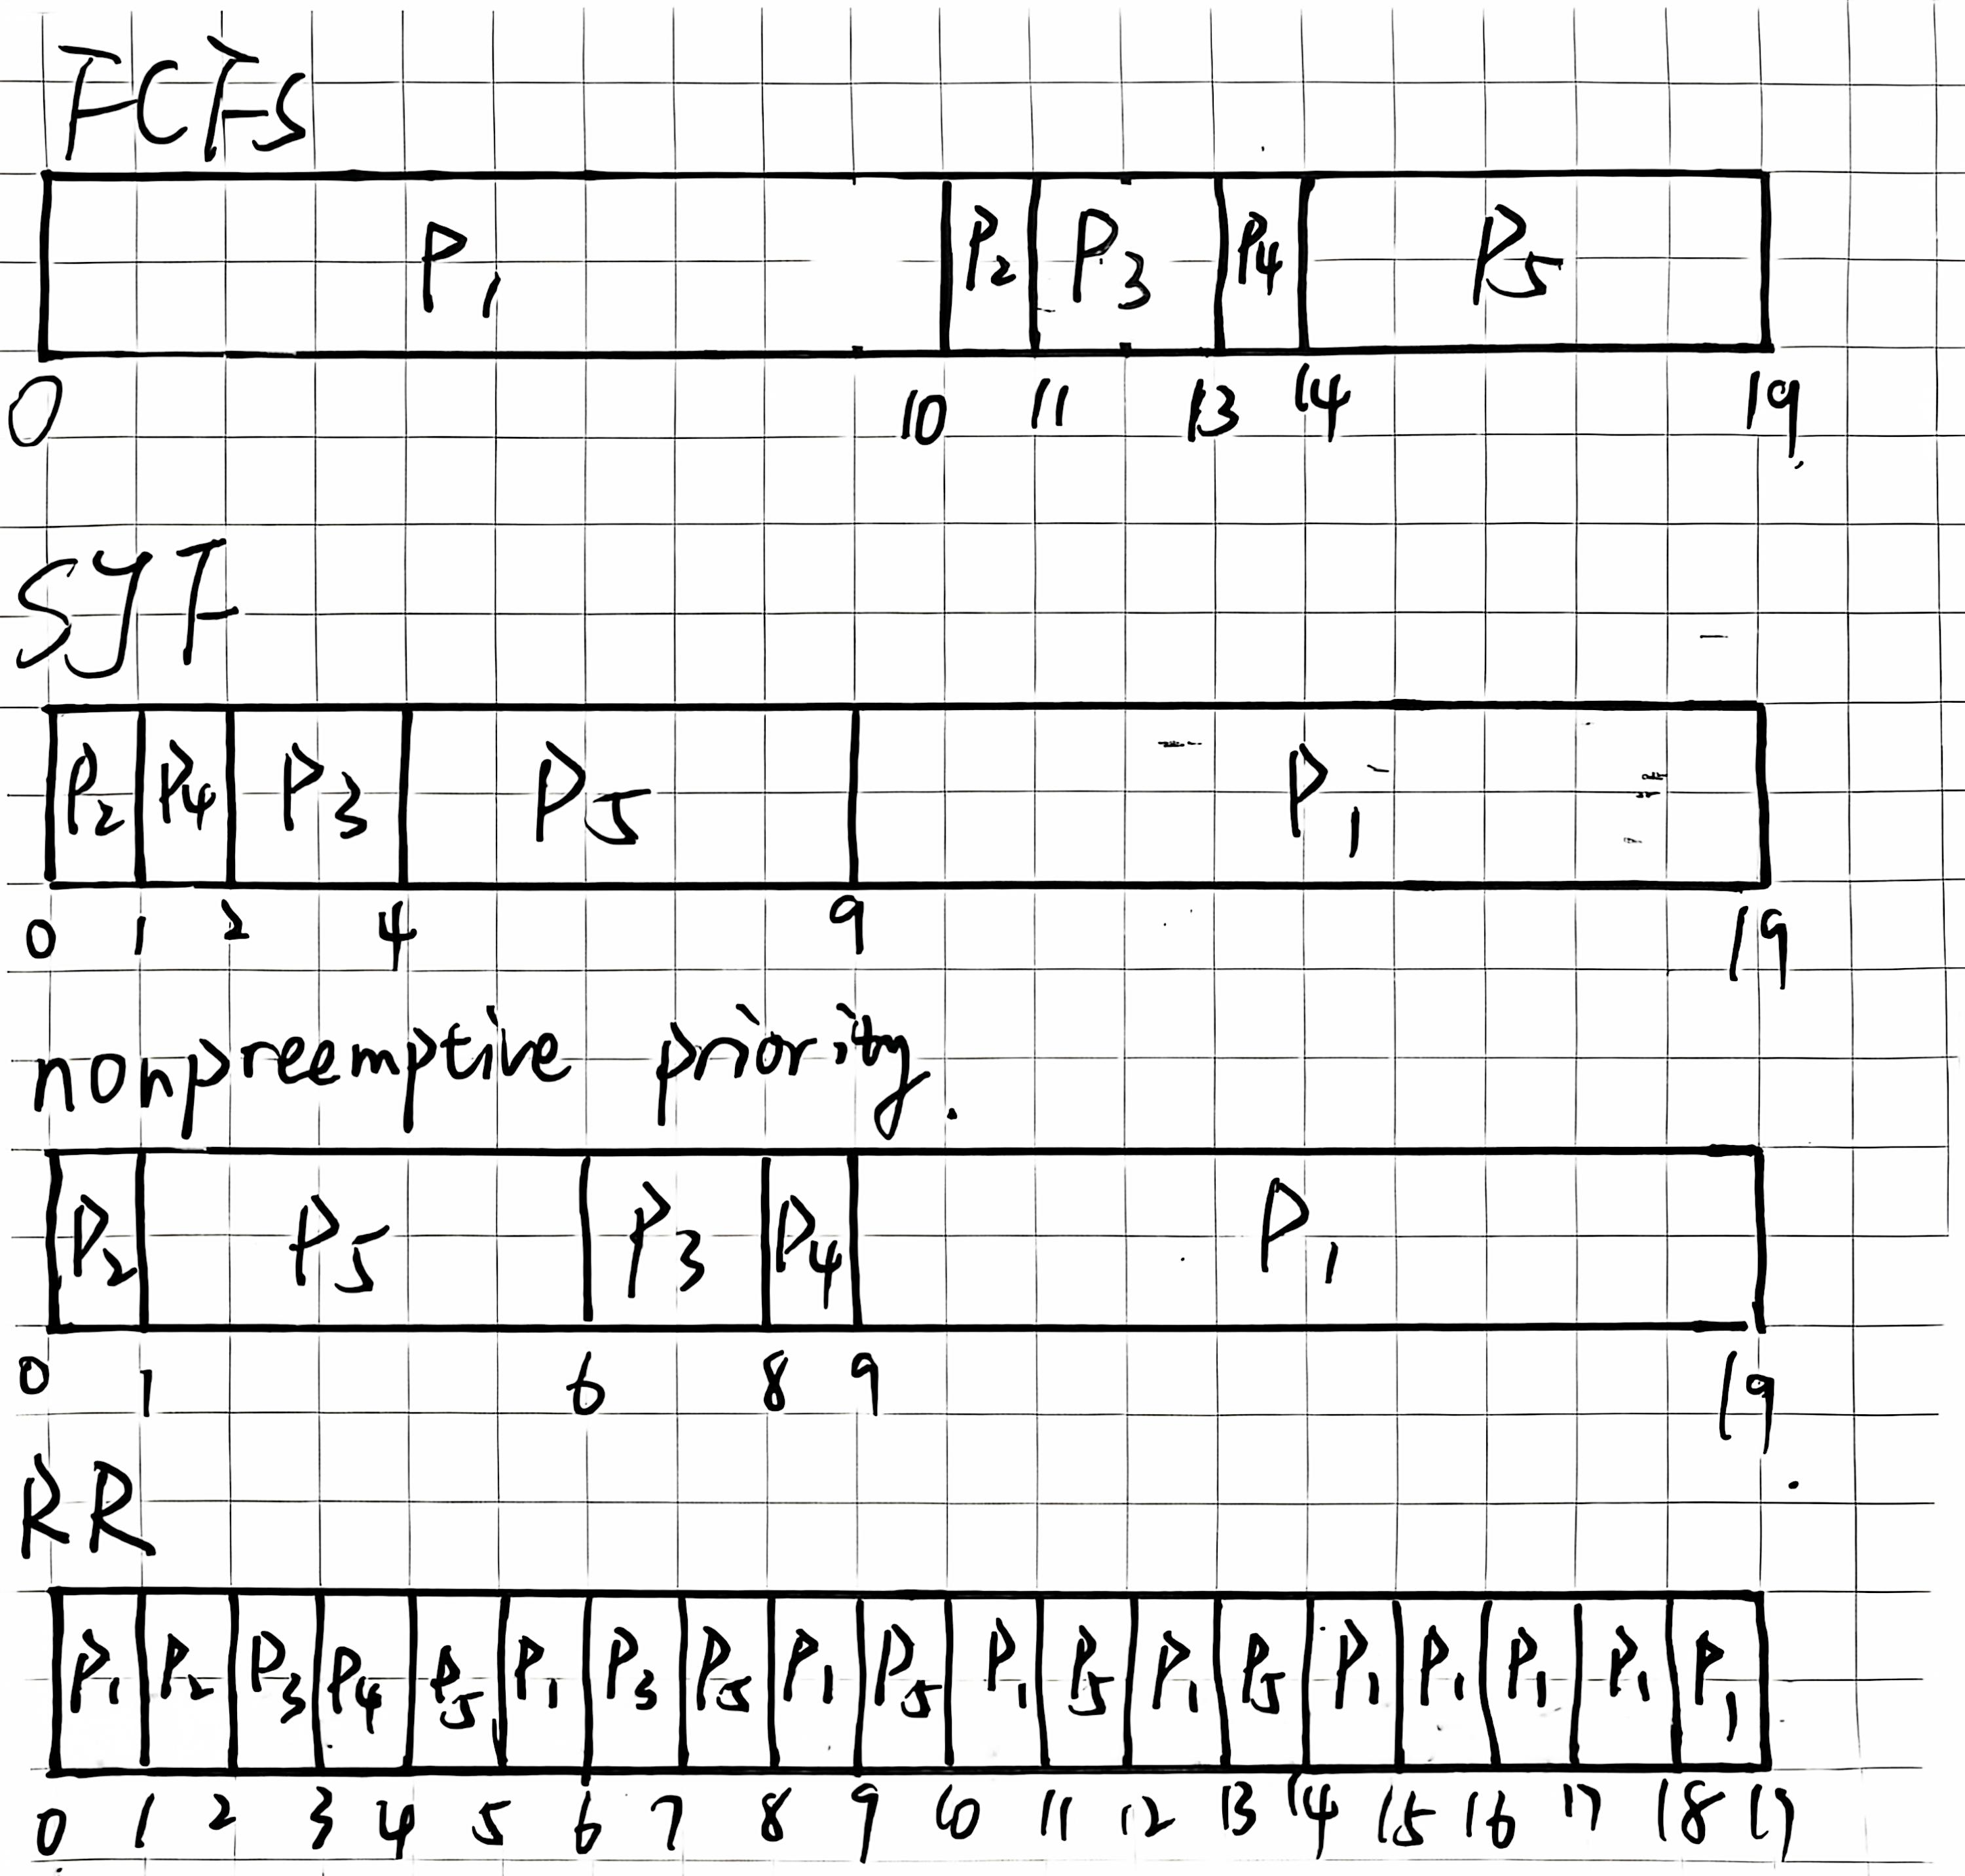 FCFS
P1 P2 P3 P4 P5
0 10 11 13 14 19
SJF
P2 P4 P3 P5 P1
0 1 2 4 9 19
nonpreemptive priority.
P2 P5 P3 P4 P1
0 1 6 8 9 19
RR
P1 P2 P3 P4 P5 P1 P3 P5 P1 P5 P1 P5 P1 P5 P1 P1 P1 P1 P1
0 1 2 3 4 5 6 7 8 9 10 11 12 13 14 15 16 17 18 19